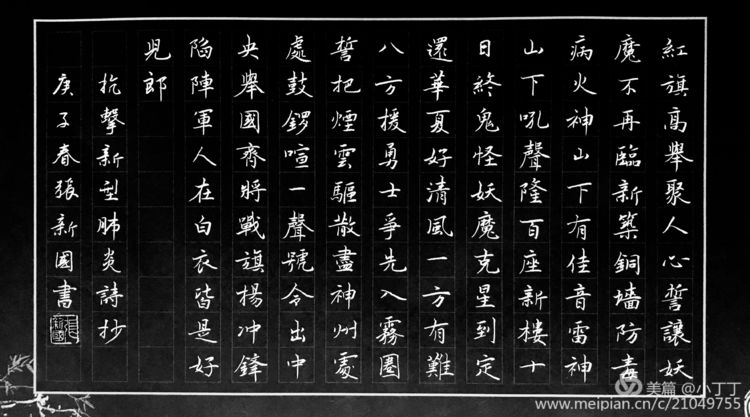 紅旗高舉聚人心誓讓妖
魔不再臨新築銅墻防毒
病火神山下有佳音雷神
山下吼聲隆百座新樓十
日終鬼怪妖魔克星到定
還華夏好清風一方有難
八方援勇士爭先入霧圈
誓把煙雲驅散盡神州處
處鼓鑼喧一聲號令出中
央舉國齊將戰旗揚冲鋒
陷陣軍人在白衣皆是好
兒郎
抗擊新型肺炎詩抄
庚子春張新國書
美篇 @小丁丁
www.meipian.cn/c/21049755